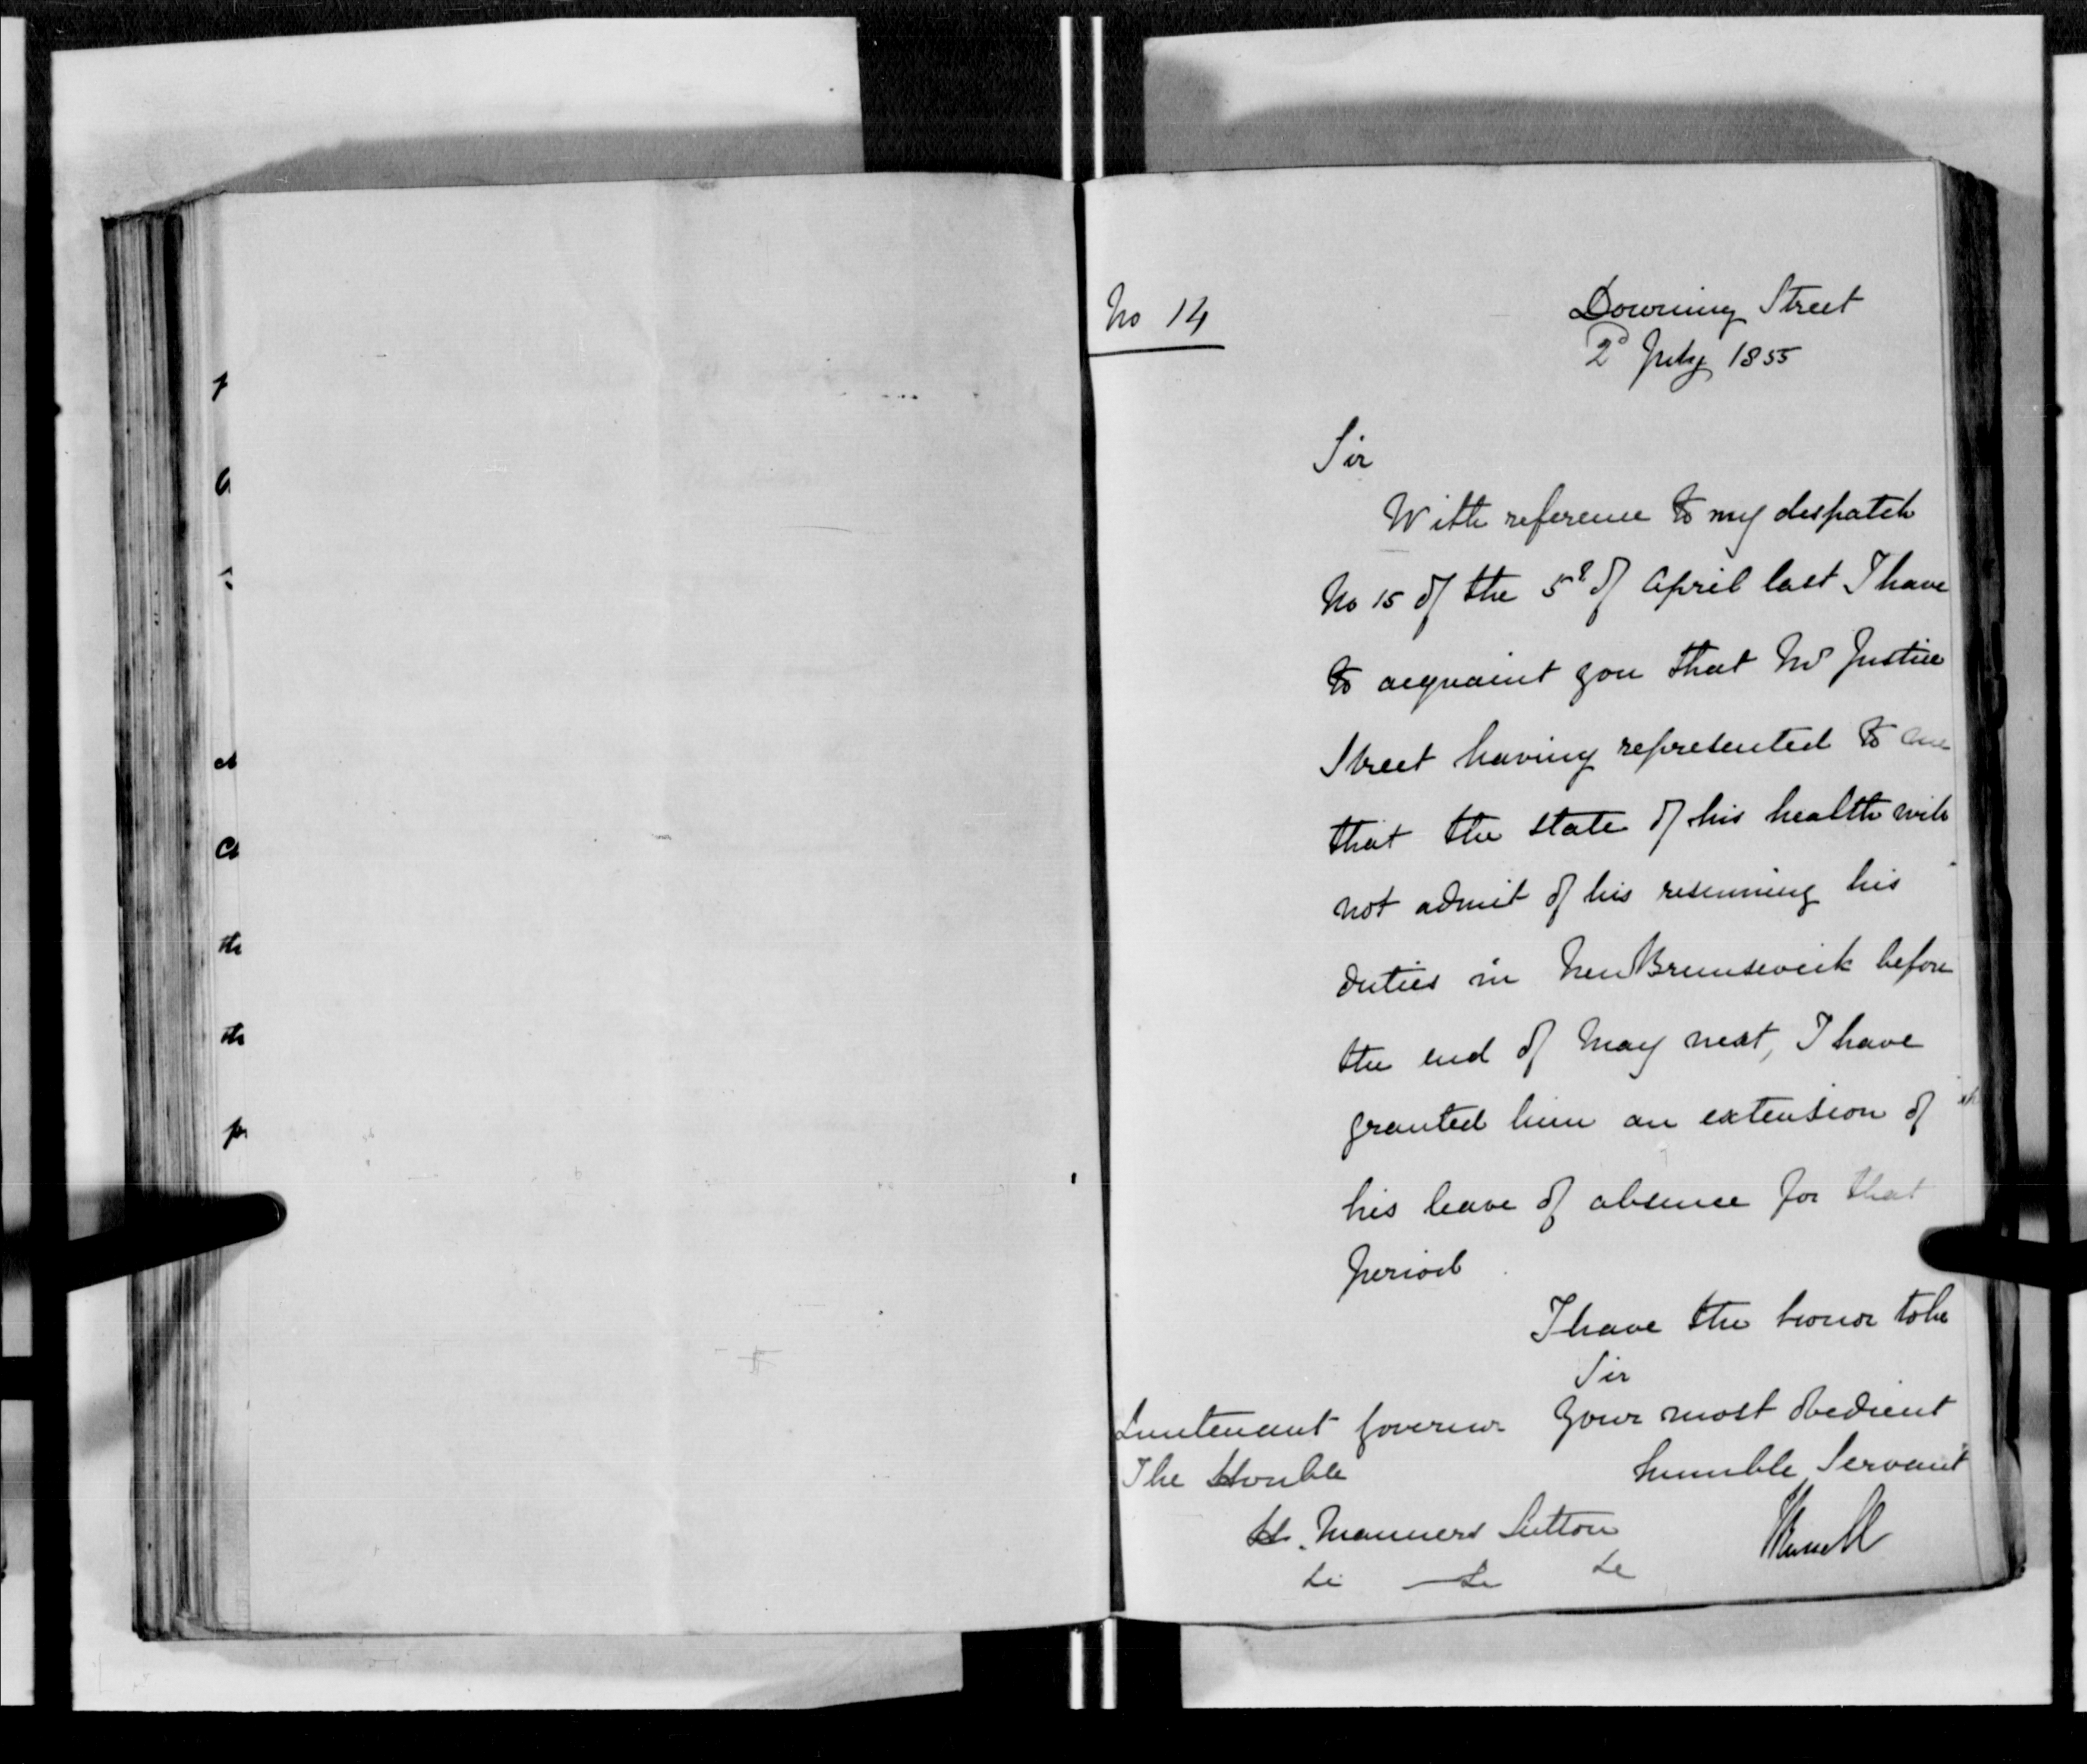 No 14
Downing Street
2d July 1855
Sir
With reference to my despatch
No 15 of the 5th of April last I have
to acquaint you that Mr Justice
Street having represented to me
that the state of his health will
not admit of his resuming his
duties in New Brunswick before
the end of May next, I have
granted him an extension of
his leave of absence for that
period
I have the honor to be
Sir
Your most obedient
humble Servant
Russell
Lieutenant Governor
The Honble
H. Manners Sutton